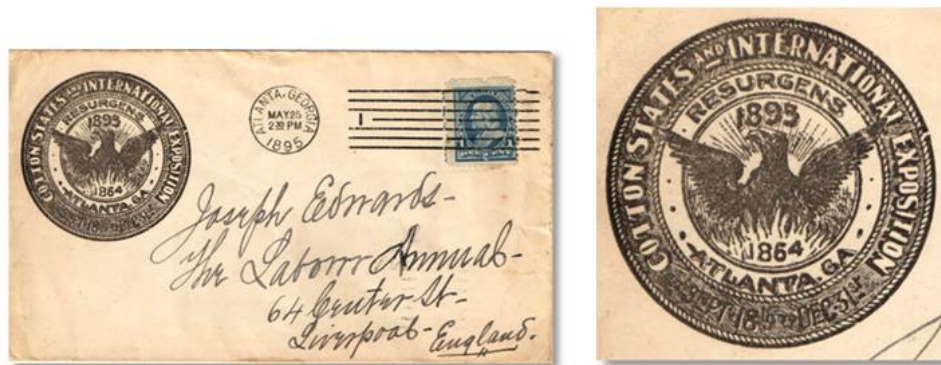 COTTON STATES AND INTERNATIONAL EXPOSITION
RESURGENS
1895
1864
ATLANTA, GA
SEPT. 18TH TO DEC. 31ST
ATLANTA, GEORGIA
MAY 25
2 30 PM
1895
1
1 1
Joseph Edwards-
The Labour Annual-
64 Center St-
Liverpool- England.
COTTON STATES AND INTERNATIONAL EXPOSITION
RESURGENS
1895
1864
ATLANTA, GA
SEPT. 18TH TO DEC. 31ST